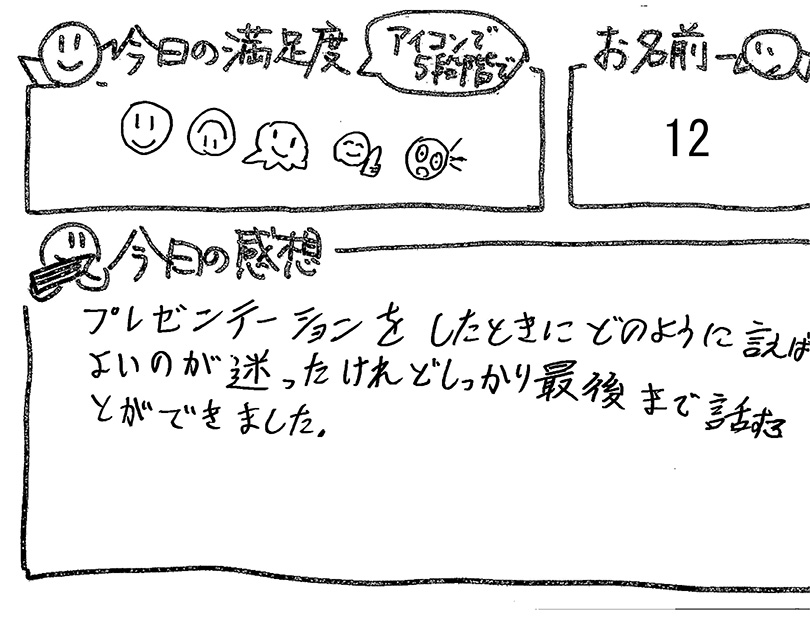 今日の満足度
アイコンで
5段階で
お名前
12
今日の感想
プレゼンテーションをしたときにどのように言えば
よいのが迷ったけれどしっかり最後まで話す
とができました。